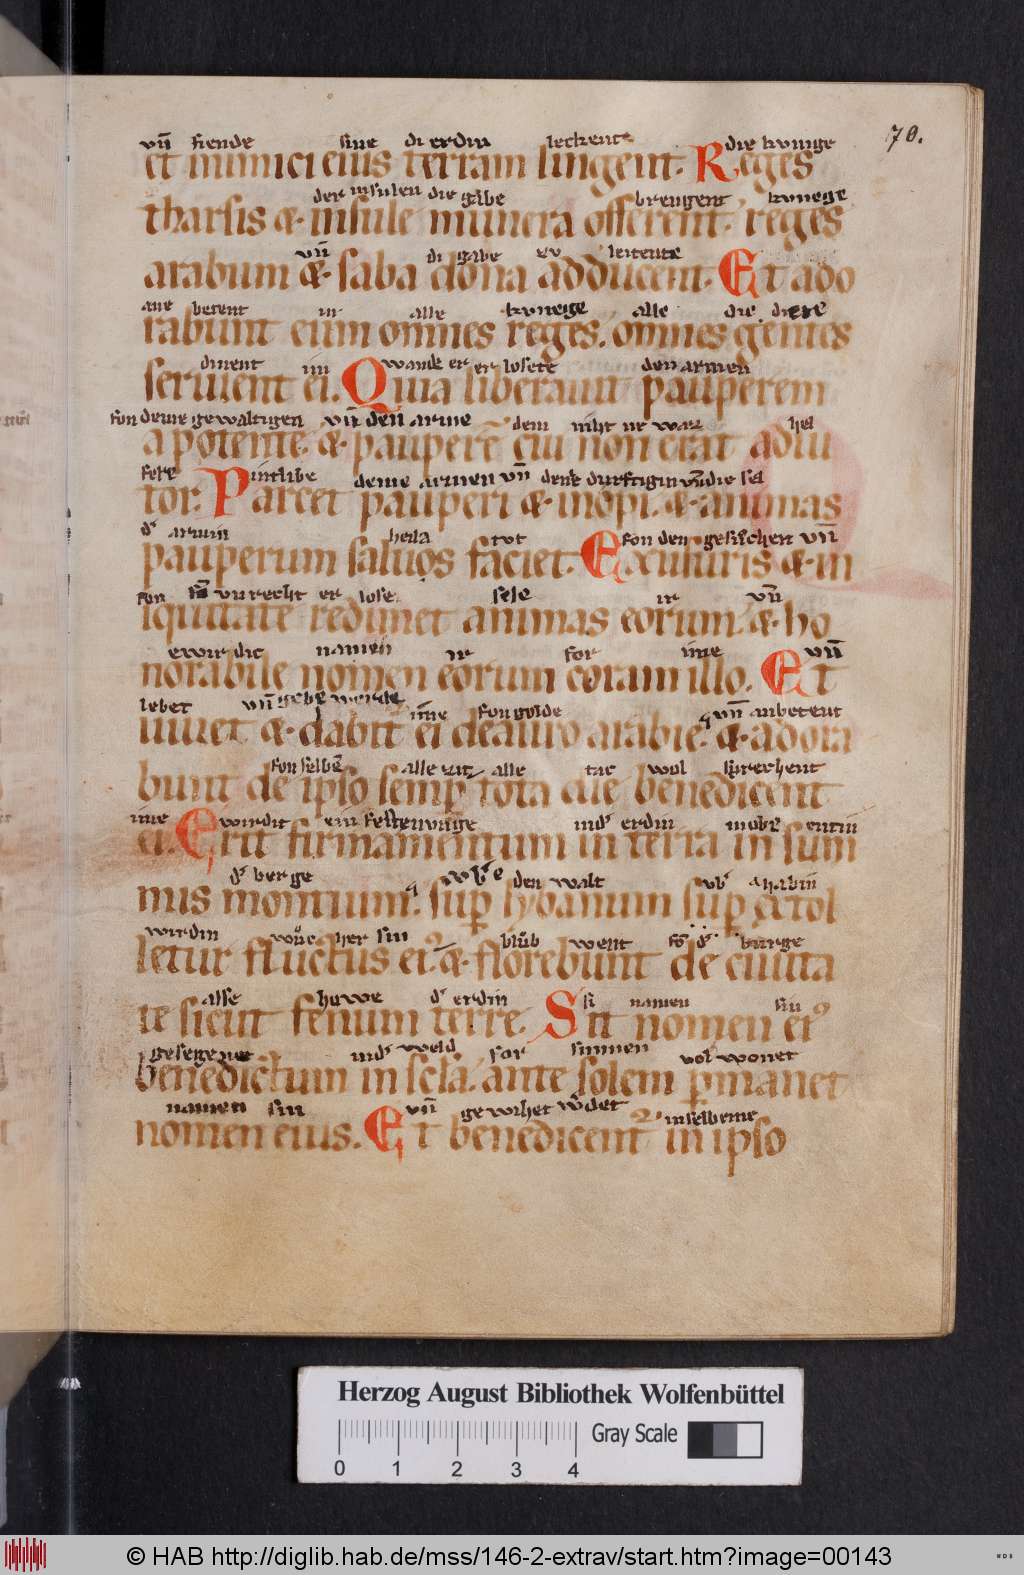 70.
vn̄ fiende sine di erdin leckent die kunige
et inimici eius terram lingent. Reges
der insulen die gabe brengent kunege
tharsis &. insule munera offerent. reges
vn̄ di gabe leitent
arabum &. saba dona adducent. Et ado
ane betent in alle kuneige alle die diete
rabunt eum omnes reges. omnes gentes
dinent im wande er er losete den armen
seruient ei. Quia liberauit pauperem
fon deme gewaltigen vn̄ den arme dem niht ne waz hel
a potente. &. pauperē cui non erat adiu
fere intlibe deme armen vn̄ deme durftigin die sel
tor. Parcet pauperi &. inopi. &. animas
armin heila tot fon den vn̄
pauperum saluos faciet. Ex usuris &. in
fon vnrecht er lose sele ir vn̄
iquitate redimet animas eorum. &. ho
ewirdic namen ir for ime vn̄
norabile nomen eorum coram illo. Et
lebet vn̄ gebe werde ime fon golde vn̄ anbetent
uiuet &. dabit ei de auro arabie. &. adora
fon selbē alle zit alle tac wol sprechent
bunt de ipso semp tota die benedicent
ime wirdit ein festenunge erdin
ei. Erit firmamentum in terra in sum
berge den walt
mus montium. sup lybanum sup extol
wirdin her sin went burge
letur fructus ei. &. florebunt de ciuita
alse howe erdin si namen sin
te sicut fenum terre. Sit nomen ei
gesegenet weld for sunnen wonet
benedictum in scl̄a. ante solem p̱manet
namen sin vn̄ gewihet w̄det in selbeme
nomen eius. Et benedicent in ipso
Herzog August Bibliothek Wolfenbüttel
Gray Scale
0 1 2 3 4
© HAB http://diglib.hab.de/mss/146-2-extrav/start.htm?image=00143